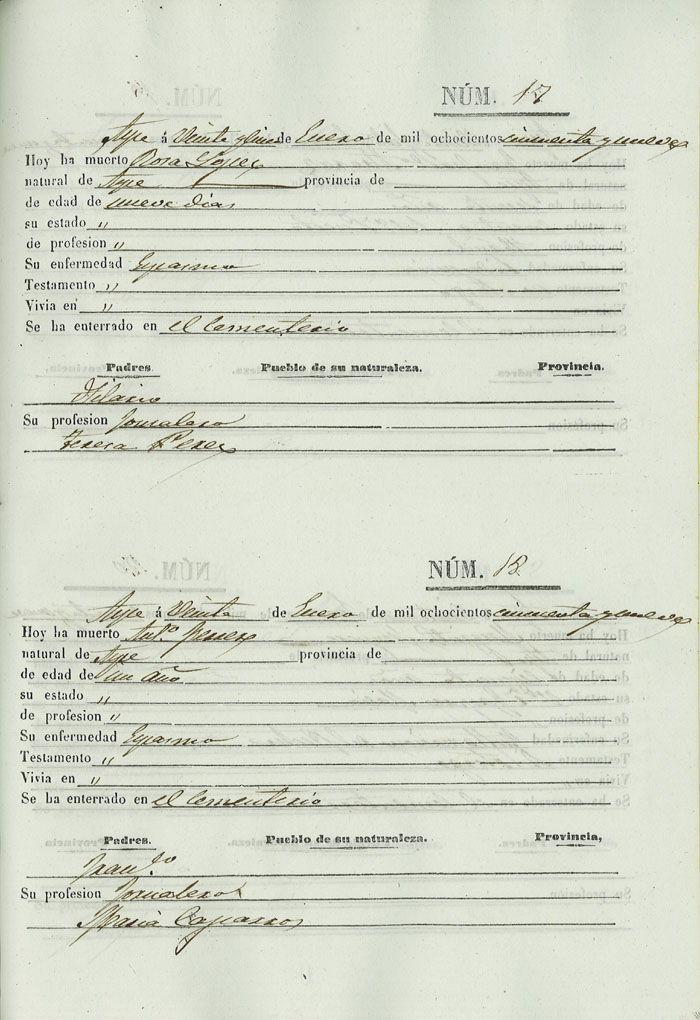 NÚM. 17
Aspe á Veinte y uno de Enero de mil ochocientos cincuenta y nueve
Hoy ha muerto Rosa Lopez
natural de Aspe provincia de
de edad de nueve dias
su estado "
de profesion "
Su enfermedad Espasmo
Testamento "
Vivia en "
Se ha enterrado en el Cementerio
Padres. Pueblo de su naturaleza. Provincia.
Hilario
Su profesion Jornalero
Teresa Perez
NÚM. 18
Aspe á Veinte de Enero de mil ochocientos cincuenta y nueve
Hoy ha muerto Ant.º
natural de Aspe provincia de
de edad de un año
su estado "
de profesion "
Su enfermedad Espasmo
Testamento "
Vivia en "
Se ha enterrado en el Cementerio
Padres. Pueblo de su naturaleza. Provincia,
Fran.co
Su profesion Jornalero
Maria Caparros